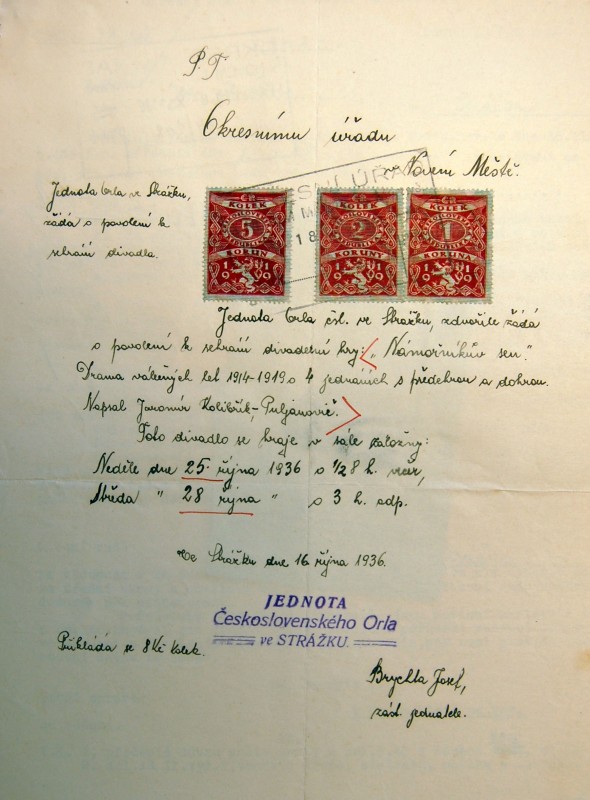 P. T.
Okresnímu úřadu
v Novém Městě.
Jednota Orla ve Strážku,
žádá o povolení k
sehrání divadla.
KOLEK
5
KORUN
1919
KOLEK
2
KORUNY
1919
KOLEK
1
KORUNA
1919
18
Jednota Orla čsl. ve Strážku, zdvořile žádá
o povolení k sehrání divadelní hry: „Námořníkův sen."
Drama válečných let 1914-1919 o 4 jednáních s předehrou a dohrou.
Napsal Jaromír Kolibřík-Puljanovič.
Toto divadlo se hraje v sále záložny:
Neděle dne 25. října 1936 o 1/2 8 h. več,
Středa " 28 října " o 3 h. odp.
Ve Strážku dne 16. října 1936.
JEDNOTA
Československého Orla
ve STRÁŽKU.
Přikládá se 8 Kč kolek.
Brychta Josef,
zást. jednatele.